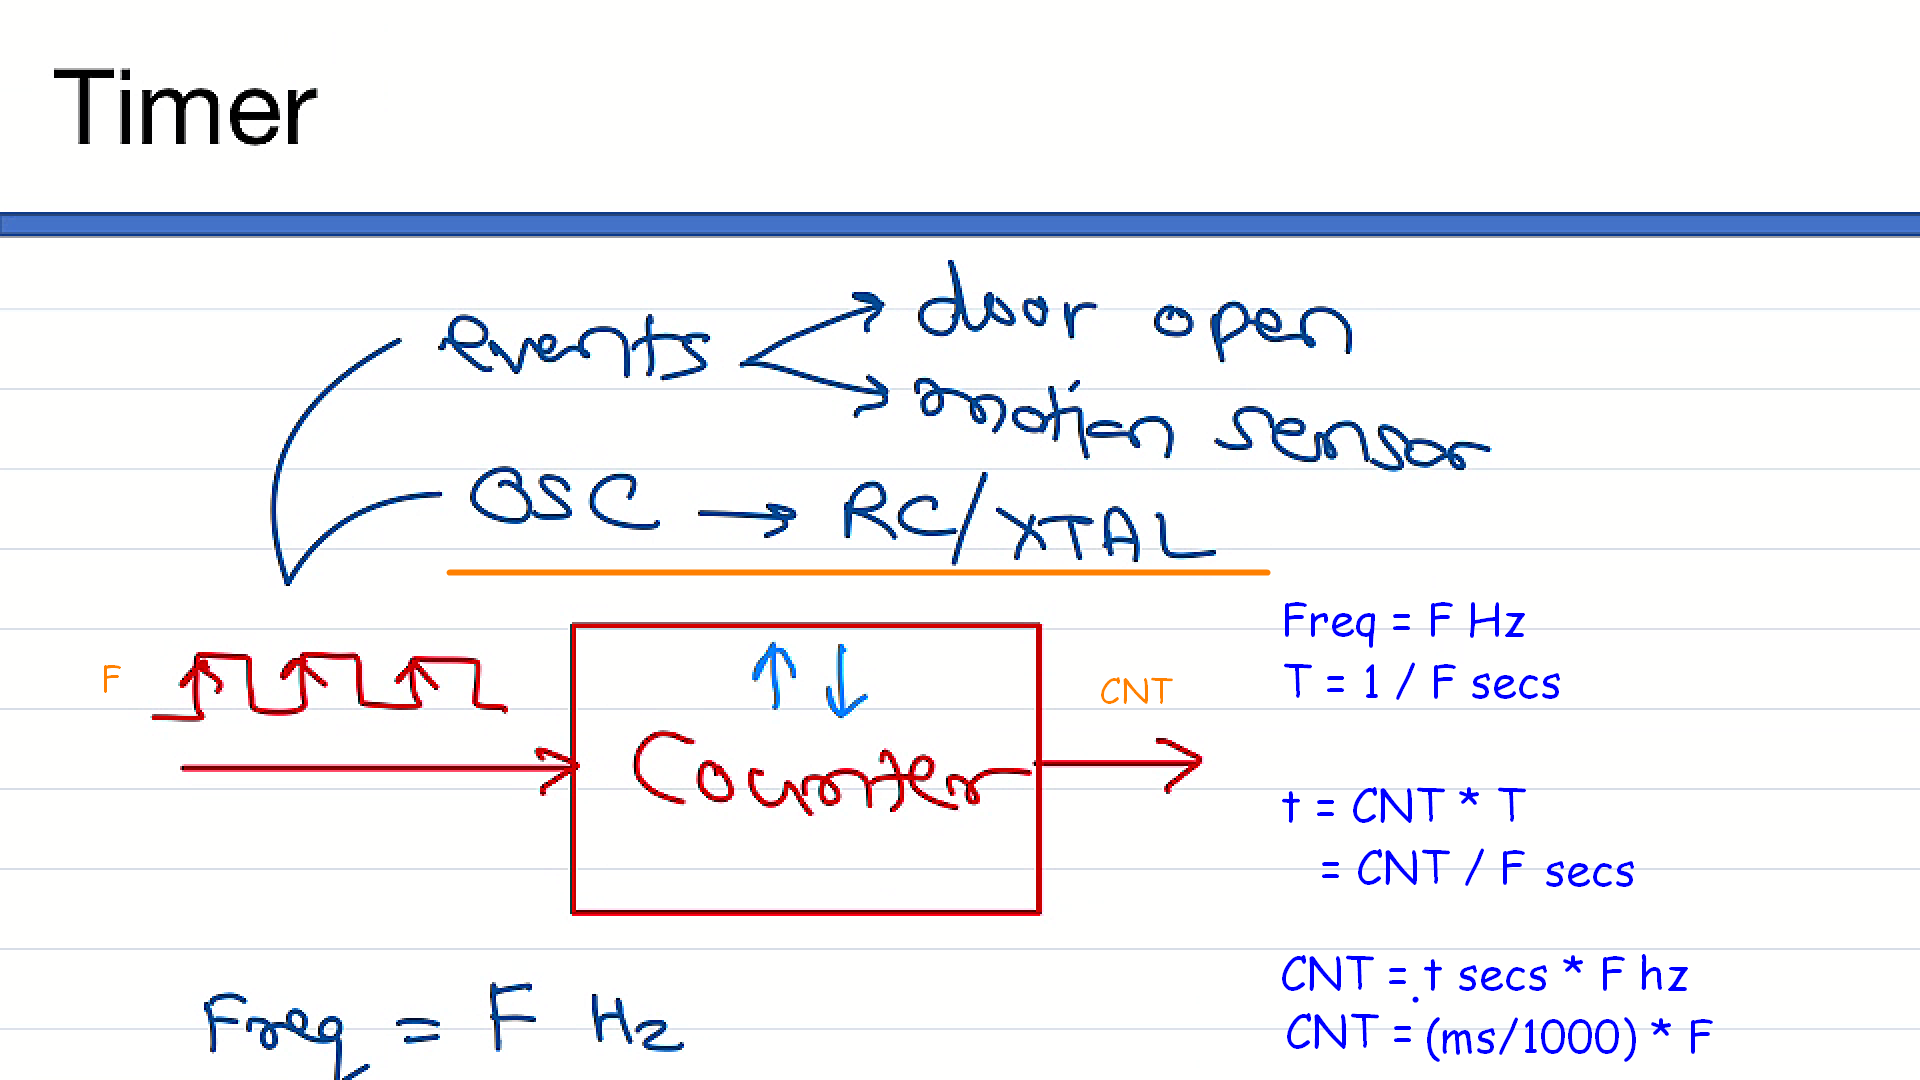 Timer
events door open
motion sensor
OSC → RC/XTAL
F
Counter
CNT
Freq = F Hz
T = 1 / F secs
t = CNT * T
= CNT / F secs
CNT = t secs * F hz
CNT = (ms/1000) * F
Freq = F Hz